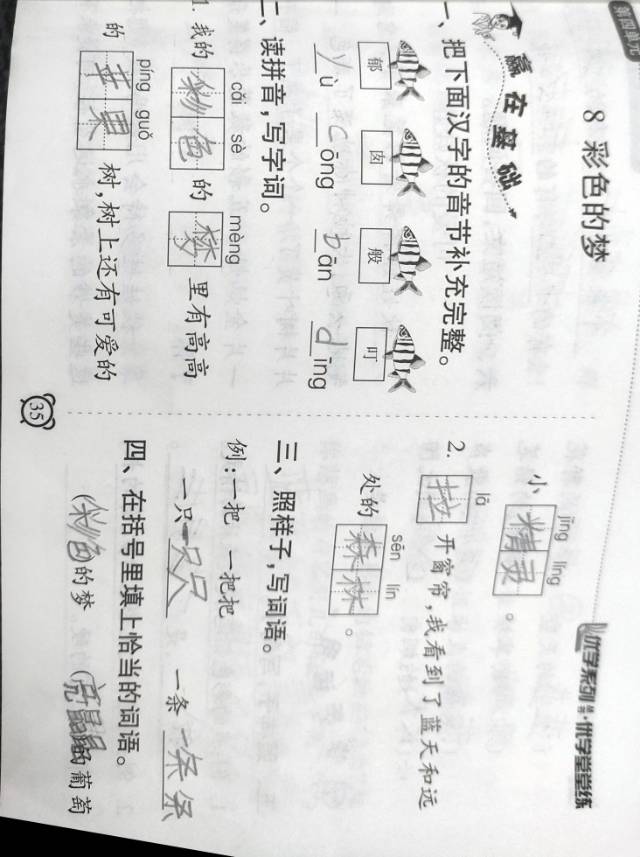 优学系列 优学堂堂练
8 彩色的梦
赢在基础
一、把下面汉字的音节补充完整。
郁 囱 般 叮
yù cōng bān dīng
二、读拼音,写字词。
cǎi sè mèng
1. 我的 彩色 的 梦 里有高高
píng guǒ
的 苹果 树,树上还有可爱的
jīng líng
小 精灵 。
lā
2. 拉 开窗帘,我看到了蓝天和远
sēn lín
处的 森林 。
三、照样子,写词语。
例:一把 一把把
一只 一只只 一条 一条条
四、在括号里填上恰当的词语。
(彩色)的梦 (亮晶晶)的葡萄
35